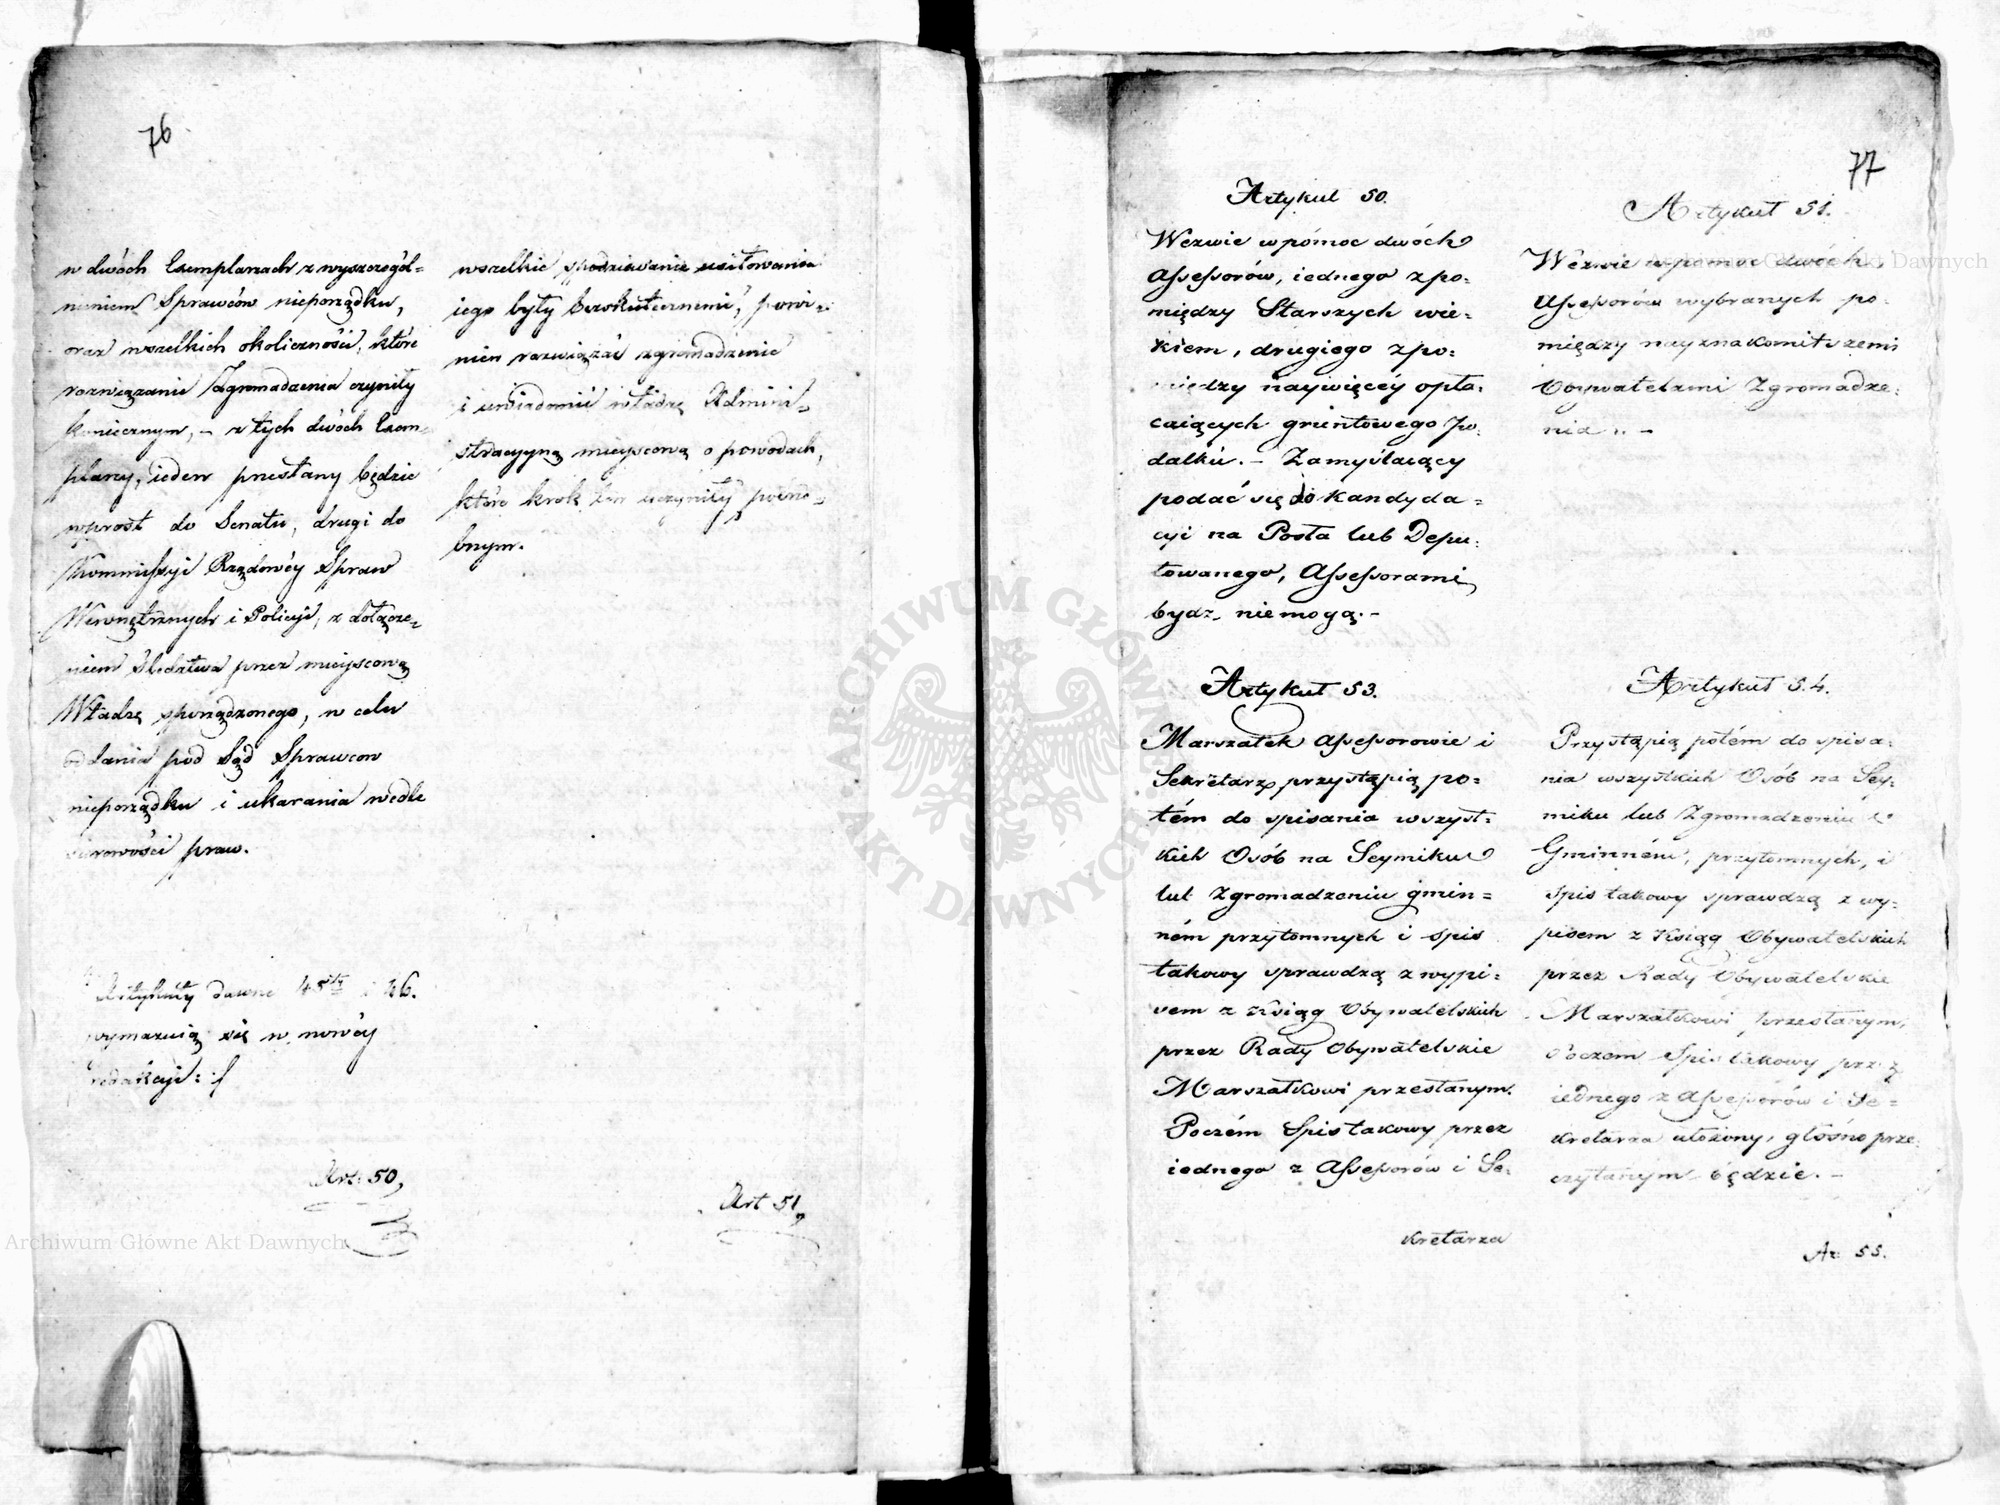 76
w dwóch Exemplarzach z wyszczegól=
nieniem Sprawców nieporządku,
oraz wszelkich okoliczności, które
rozwiązanie Zgromadzenia czyniły
koniecznym, – z tych dwóch Exem=
plarzy, ieden przesłany będzie
wprost do Senatu, drugi do
Kommissyi Rządowéy Spraw
Wewnętrznych i Policyi, z dołącze=
niem śledztwa przez mieyscową
Władzę sporządzonego, w celu
oddania pod Sąd Sprawców
nieporządku i ukarania wedle
surowości praw.
Artykuły dawne 45ty i 46.
wymazuią się w nowéy
redakcyi :/
Art: 50,
wszelkie spodziewanie usiłowania
iego były bezskutecznemi, powi=
nien rozwiązać zgromadzenie
i uwiadomić władzę Admini=
stracyyną mieyscową o powodach,
które krok ten uczyniły potrze=
bnym.
Art 51,
77
Artykuł 50.
Wezwie w pomoc dwóch
Assessorów, iednego z po=
między Starszych wie=
kiem, drugiego z po=
między naywięcéy opła=
caiących gruntowego Po=
datku. – Zamyślaiący
podać się do kandyda=
cyi na Posła lub Depu=
towanego, Assessorami
bydz nie mogą. –
Artykuł 53.
Marszałek Assessorowie i
Sekretarz przystąpią po=
tém do spisania wszyst=
kich Osób na Seymiku
lub Zgromadzeniu gmin=
ném przytomnych i spis
takowy sprawdzą z wypi=
sem z Ksiąg Obywatelskich
przez Rady Obywatelskie
Marszałkowi przesłanym.
Poczém Spis takowy przez
iednego z Assessorów i Se=
kretarza
Artykuł 51.
Wezwie w pomoc dwóch
Assessorów wybranych po=
między nayznakomitszemi
Obywatelami Zgromadze=
nia. –
Artykuł 54.
Przystąpią potém do spisa=
nia wszystkich Osób na Sey=
miku lub Zgromadzeniu
Gminném, przytomnych, i
spis takowy sprawdzą z wy=
pisem z Ksiąg Obywatelskich
przez Rady Obywatelskie
Marszałkowi przesłanym,
Poczem Spis takowy przez
iednego z Assessorów i Se=
kretarza ułożony, głośno prze=
czytanym będzie. –
Ar 55.
ARCHIWUM GŁÓWNE
AKT DAWNYCH
Archiwum Główne Akt Dawnych
Archiwum Główne Akt Dawnych